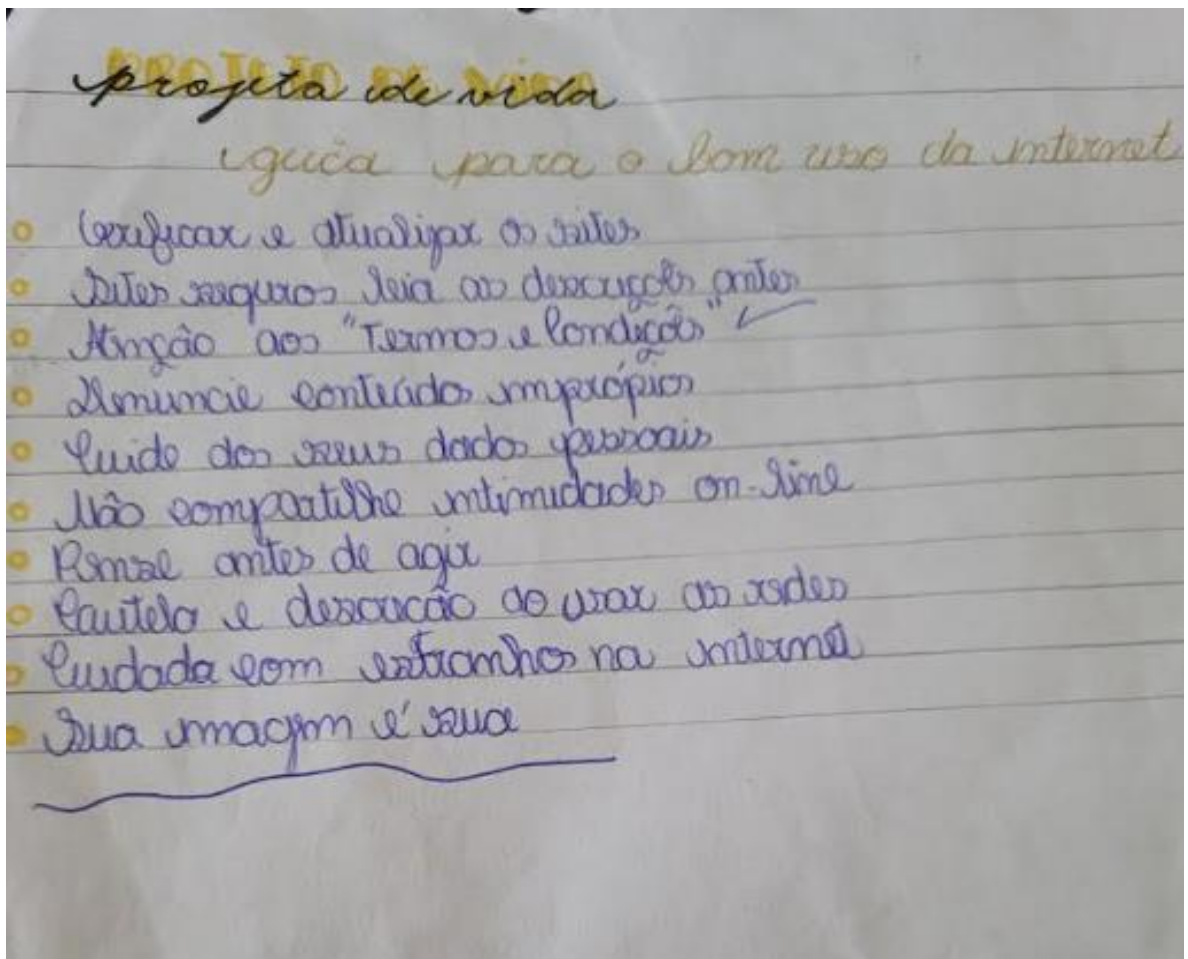 PROJETO DE VIDA
projeto de vida
guia para o bom uso da internet
Verificar e atualizar os sites
Sites seguros leia as descrições antes
Atenção aos "Termos e Condições"
Denuncie conteúdos impróprios
Cuide dos seus dados pessoais
Não compartilhe intimidades on-line
Pense antes de agir
Cautela e descrição ao usar as redes
Cuidado com estranhos na internet
Sua imagem é sua